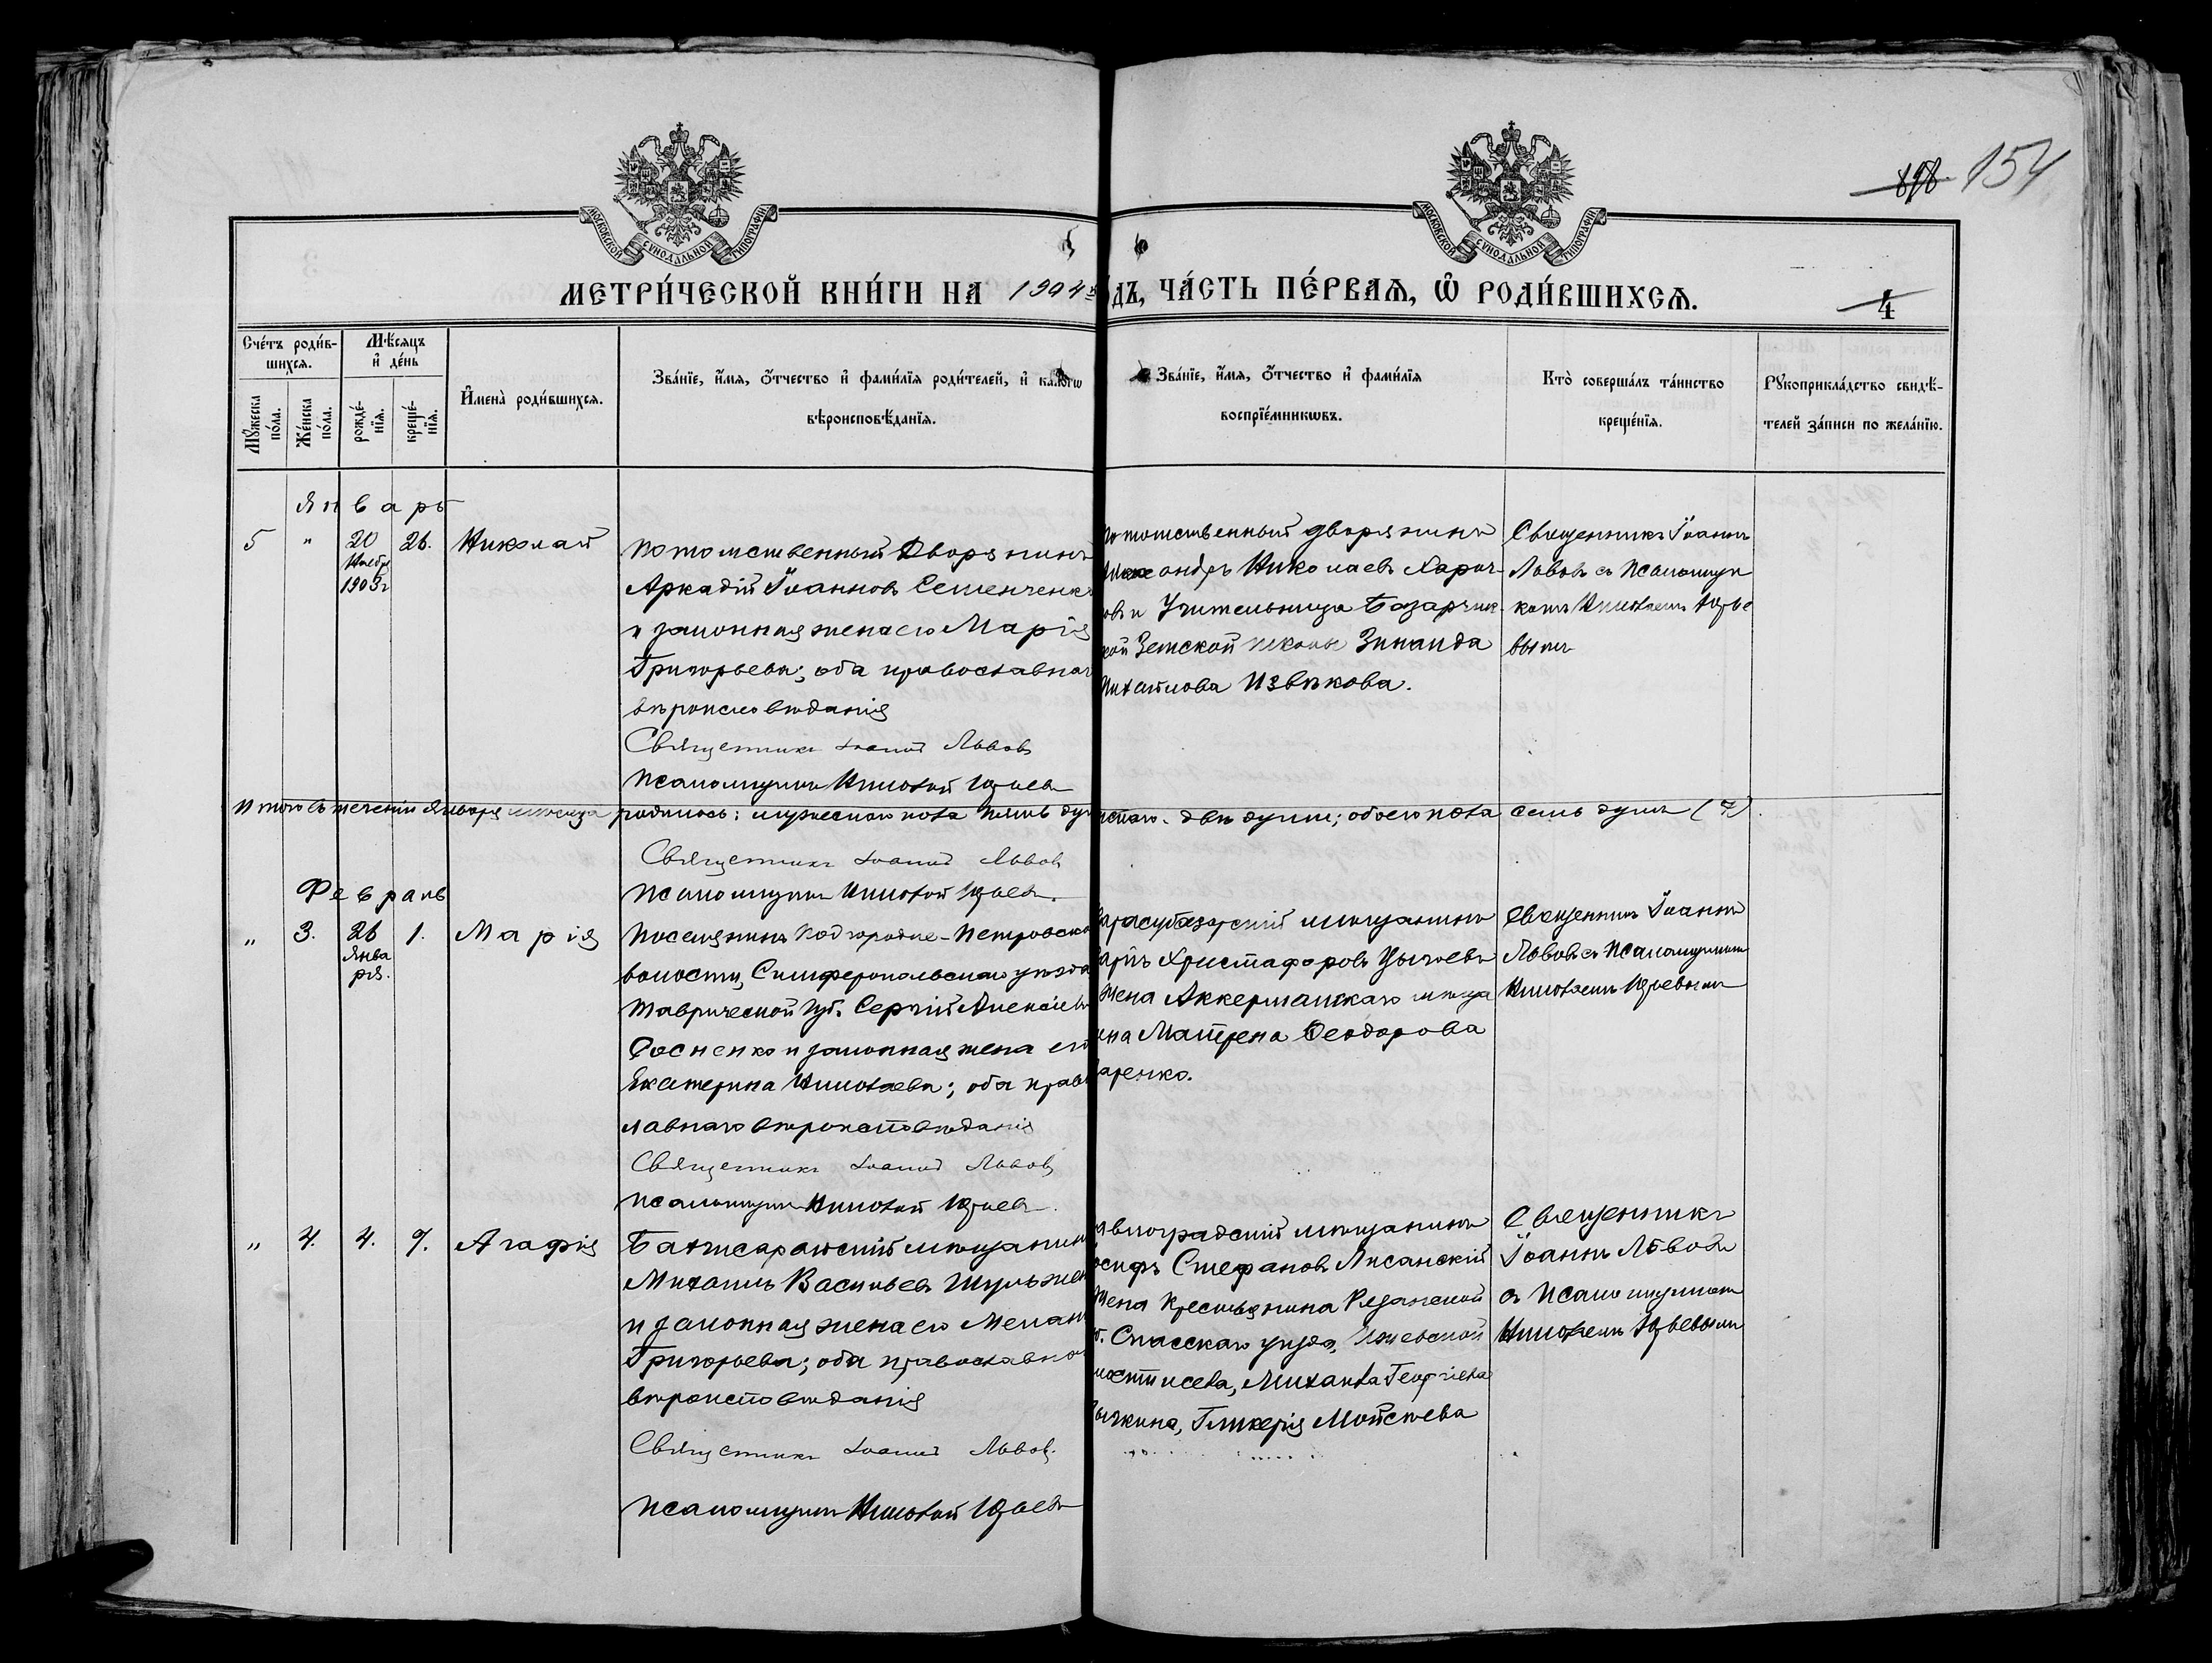 898 154
МОСКОВСКОЙ СУНОДАЛЬНОЙ ТИПОГРАФІИ
МОСКОВСКОЙ СУНОДАЛЬНОЙ ТИПОГРАФІИ
МЕТРИ́ЧЕСКОЙ КНИ́ГИ НА 1904 ДЪ, ЧА́СТЬ ПЕ́РВАЯ, Ѡ РОДИ́ВШИХСЯ.
4
Сче́тъ роди́в-
шихся.
Му́жеска по́ла.
Же́нска по́ла.
Мѣ́сяцъ и де́нь
рожде́-нїя.
креще́-нїя.
И҆мена̀ роди́вшихся.
Зва́нїе, и҆мя, ѻ҆́тчество и҆ фами́лїя роди́телей, и҆ како́гѡ
вѣроисповѣ́данїя.
Зва́нїе, и҆мя, ѻ҆́тчество и҆ фами́лїя
воспрїе́мникѡвъ.
Кто̀ соверша́лъ та́инство
креще́нїя.
Рꙋкоприкла́дство свидѣ́-
телей за́писи по жела́нїю.
Январь
5 " 20 Ноябр 1903 г 26. Николай
Потомственный Дворянинъ
Аркадій Іоанновъ Семенченк
и законная жена его Марія
Григорьева; оба православнаг
вѣроисповѣданія
Священникъ Іоаннъ Львовъ
Псаломщикъ Николай Юрьевъ
потомственный дворянинъ
Александръ Николаевъ Харич
овъ и Учительница Базарчик
кой Земской школы Зинаида
Михайлова Извѣкова.
Священникъ Іоаннъ
Львовъ съ Псаломщи
комъ Николаемъ Юрье
вымъ
Итого въ теченіи Января мѣсяца родилось: мужескаго пола пять ду нскаго две души; обоего пола семь душъ (7).
Священникъ Іоаннъ Львовъ
Псаломщикъ Николай Юрьевъ.
Февраль
" 3. 26 Января. 1. Марія
Поселянинъ Подгородне-Петровско
волости, Симферопольскаго уѣзда
Таврической губ. Сергій Алексіевъ
Фосненко и законная жена его
Екатерина Николаева; оба прав
лавнаго вѣроисповѣданія
Священникъ Іоаннъ Львовъ
Псаломщикъ Николай Юрьевъ.
арасубазарскій мѣщанинъ
Христафоровъ
жена Аккерманскаго мѣща
ина Матрена Ѳеодорова
аренко.
Священникъ Іоаннъ
Львовъ съ Псаломщикомъ
Николаемъ Юрьевымъ
" 4. 4. 7. Агафія
Бахчисарайскій мѣщанин
Михаилъ Васильевъ Шульжен
и законная жена его Мелан
Григорьева; оба православна
вѣроисповѣданія
Священникъ Іоаннъ Львовъ.
Псаломщикъ Николай Юрьевъ
авлоградскій мѣщанинъ
осифъ Стефановъ Лисанскій
жена крестьянина Рязанской
б. Спасскаго уѣзда, Ижевской
лости и села, Михаила Георгіева
ычкина, Гликерія Моисѣева
Священникъ
Іоаннъ Львовъ
съ Псаломщикомъ
Николаемъ Юрьевымъ